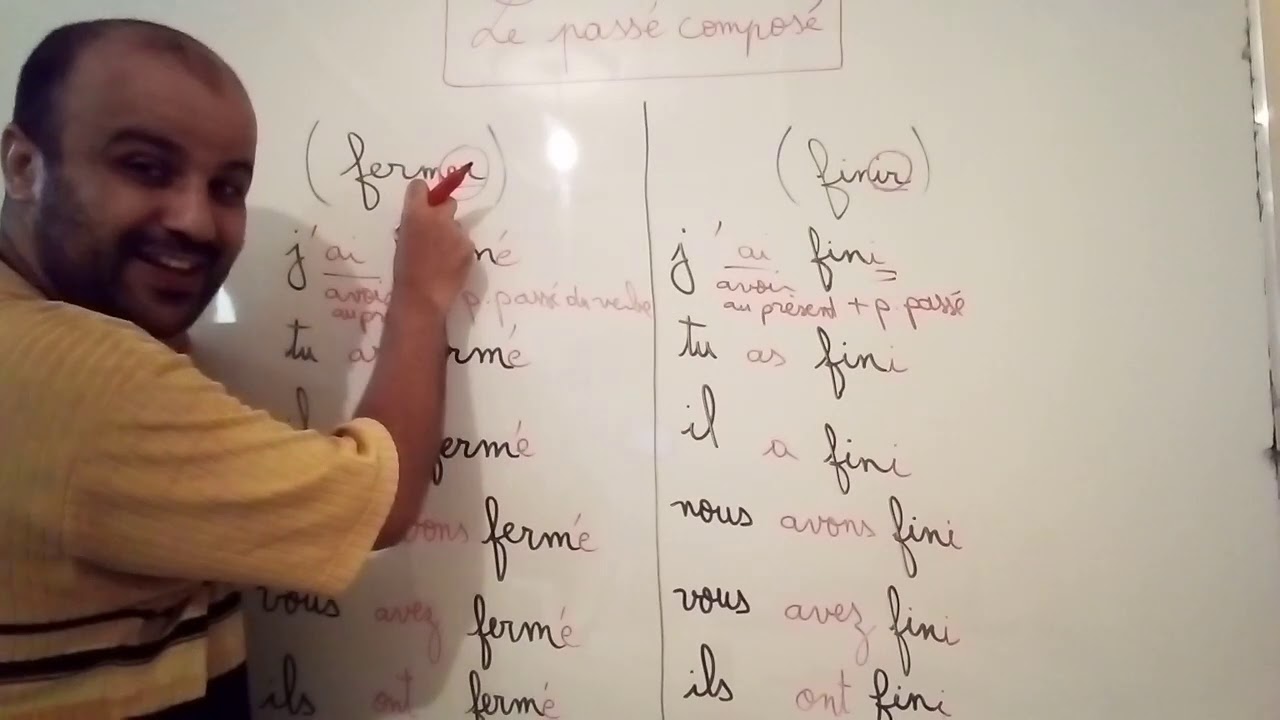 Le passé composé
(fermer)
j'ai né
p. passé du verbe
tu fermé
fermé
fermé
vous avez fermé
ils ont fermé
(finir)
j'ai fini
avoir
au présent + p. passé
tu as fini
il a fini
nous avons fini
vous avez fini
ils ont fini